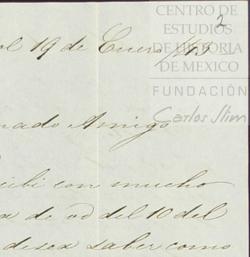 CENTRO DE
ESTUDIOS
DE HISTORIA
DE MEXICO
FUNDACIÓN
Carlos Slim
2
19 de Enero
Amigo
con mucho
de vd del 10 del
desea saber como